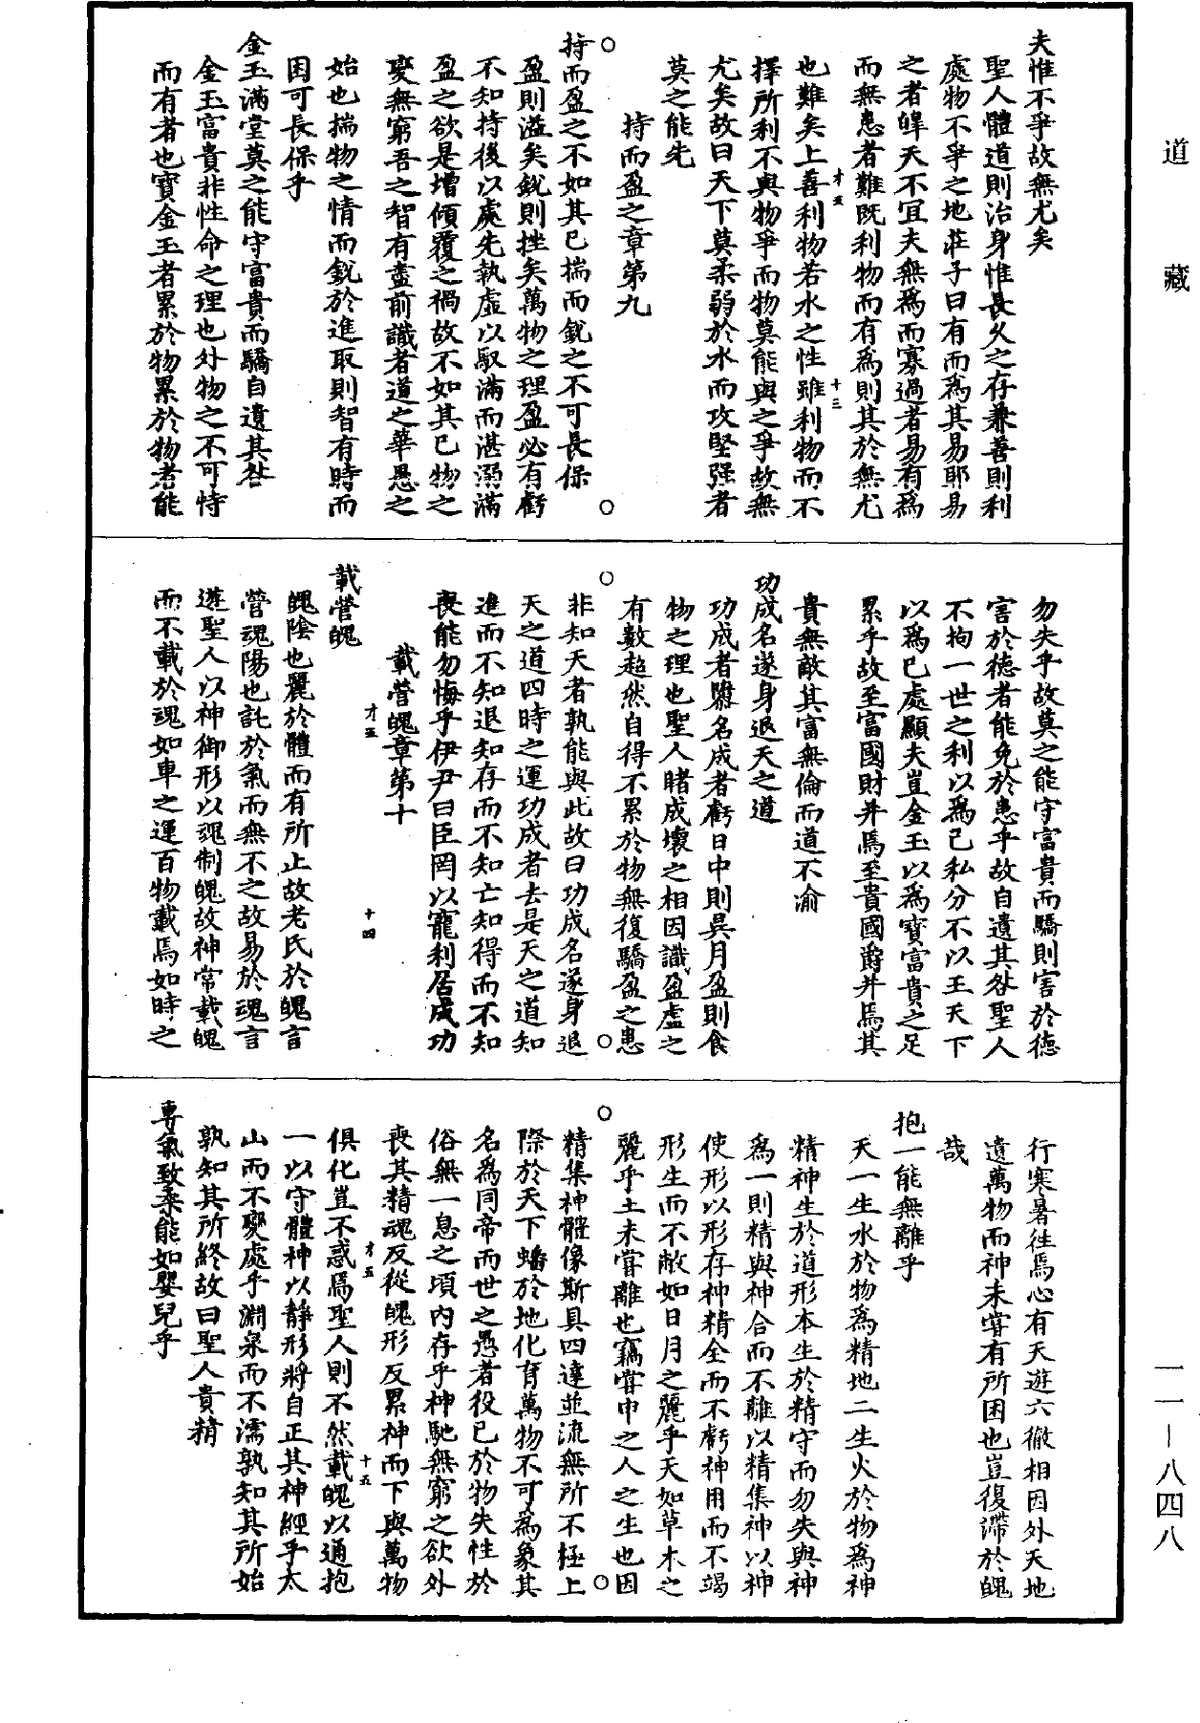 道藏
夫惟不爭故無尤矣
聖人體道則治身惟長久之存兼善則利
處物不爭之地莊子曰有而為其易耶易
之者皞天不宜夫無為而寡過者易有為
而無患者難既利物而有為則其於無尤
也難矣上善利物若水之性雖利物而不
才五 十三
擇所利不與物爭而物莫能與之爭故無
尤矣故曰天下莫柔弱於水而攻堅强者
莫之能先
持而盈之章第九
持而盈之不如其已揣而銳之不可長保
盈則溢矣銳則挫矣萬物之理盈必有虧
不知持後以處先執虛以馭滿而湛溺滿
盈之欲是增傾覆之禍故不如其已物之
變無窮吾之智有盡前識者道之華愚之
始也揣物之情而銳於進取則智有時而
困可長保乎
金玉滿堂莫之能守富貴而驕自遺其咎
金玉富貴非性命之理也外物之不可恃
而有者也寶金玉者累於物累於物者能
勿失乎故莫之能守富貴而驕則害於德
害於德者能免於患乎故自遺其咎聖人
不拘一世之利以為己私分不以王天下
以為己處顯夫豈金玉以為寶富貴之足
累乎故至富國財并焉至貴國爵并焉其
貴無敵其富無倫而道不渝
功成名遂身退天之道
功成者隳名成者虧日中則昃月盈則食
物之理也聖人睹成壞之相因識盈虛之
有數超然自得不累於物無復驕盈之患
非知天者孰能與此故曰功成名遂身退
天之道四時之運功成者去是天之道知
進而不知退知存而不知亡知得而不知
喪能勿悔乎伊尹曰臣罔以寵利居成功
載營魄章第十
才五 十四
載營魄
魄陰也麗於體而有所止故老氏於魄言
營魂陽也託於氣而無不之故易於魂言
遊聖人以神御形以魂制魄故神常載魄
而不載於魂如車之運百物載焉如時之
行寒暑往焉心有天遊六徹相因外天地
遺萬物而神未嘗有所困也豈復滯於魄
哉
抱一能無離乎
天一生水於物為精地二生火於物為神
精神生於道形本生於精守而勿失與神
為一則精與神合而不離以精集神以神
使形以形存神精全而不虧神用而不竭
形生而不敝如日月之麗乎天如草木之
麗乎土未嘗離也竊嘗申之人之生也因
精集神體像斯具四達並流無所不極上
際於天下蟠於地化育萬物不可為象其
名為同帝而世之愚者役己於物失性於
俗無一息之頃內存乎神馳無窮之欲外
喪其精魂反從魄形反累神而下與萬物
才五 十五
俱化豈不惑焉聖人則不然載魄以通抱
一以守體神以靜形將自正其神經乎太
山而不變處乎淵泉而不濡孰知其所始
孰知其所終故曰聖人貴精
專氣致柔能如嬰兒乎
一一－八四八